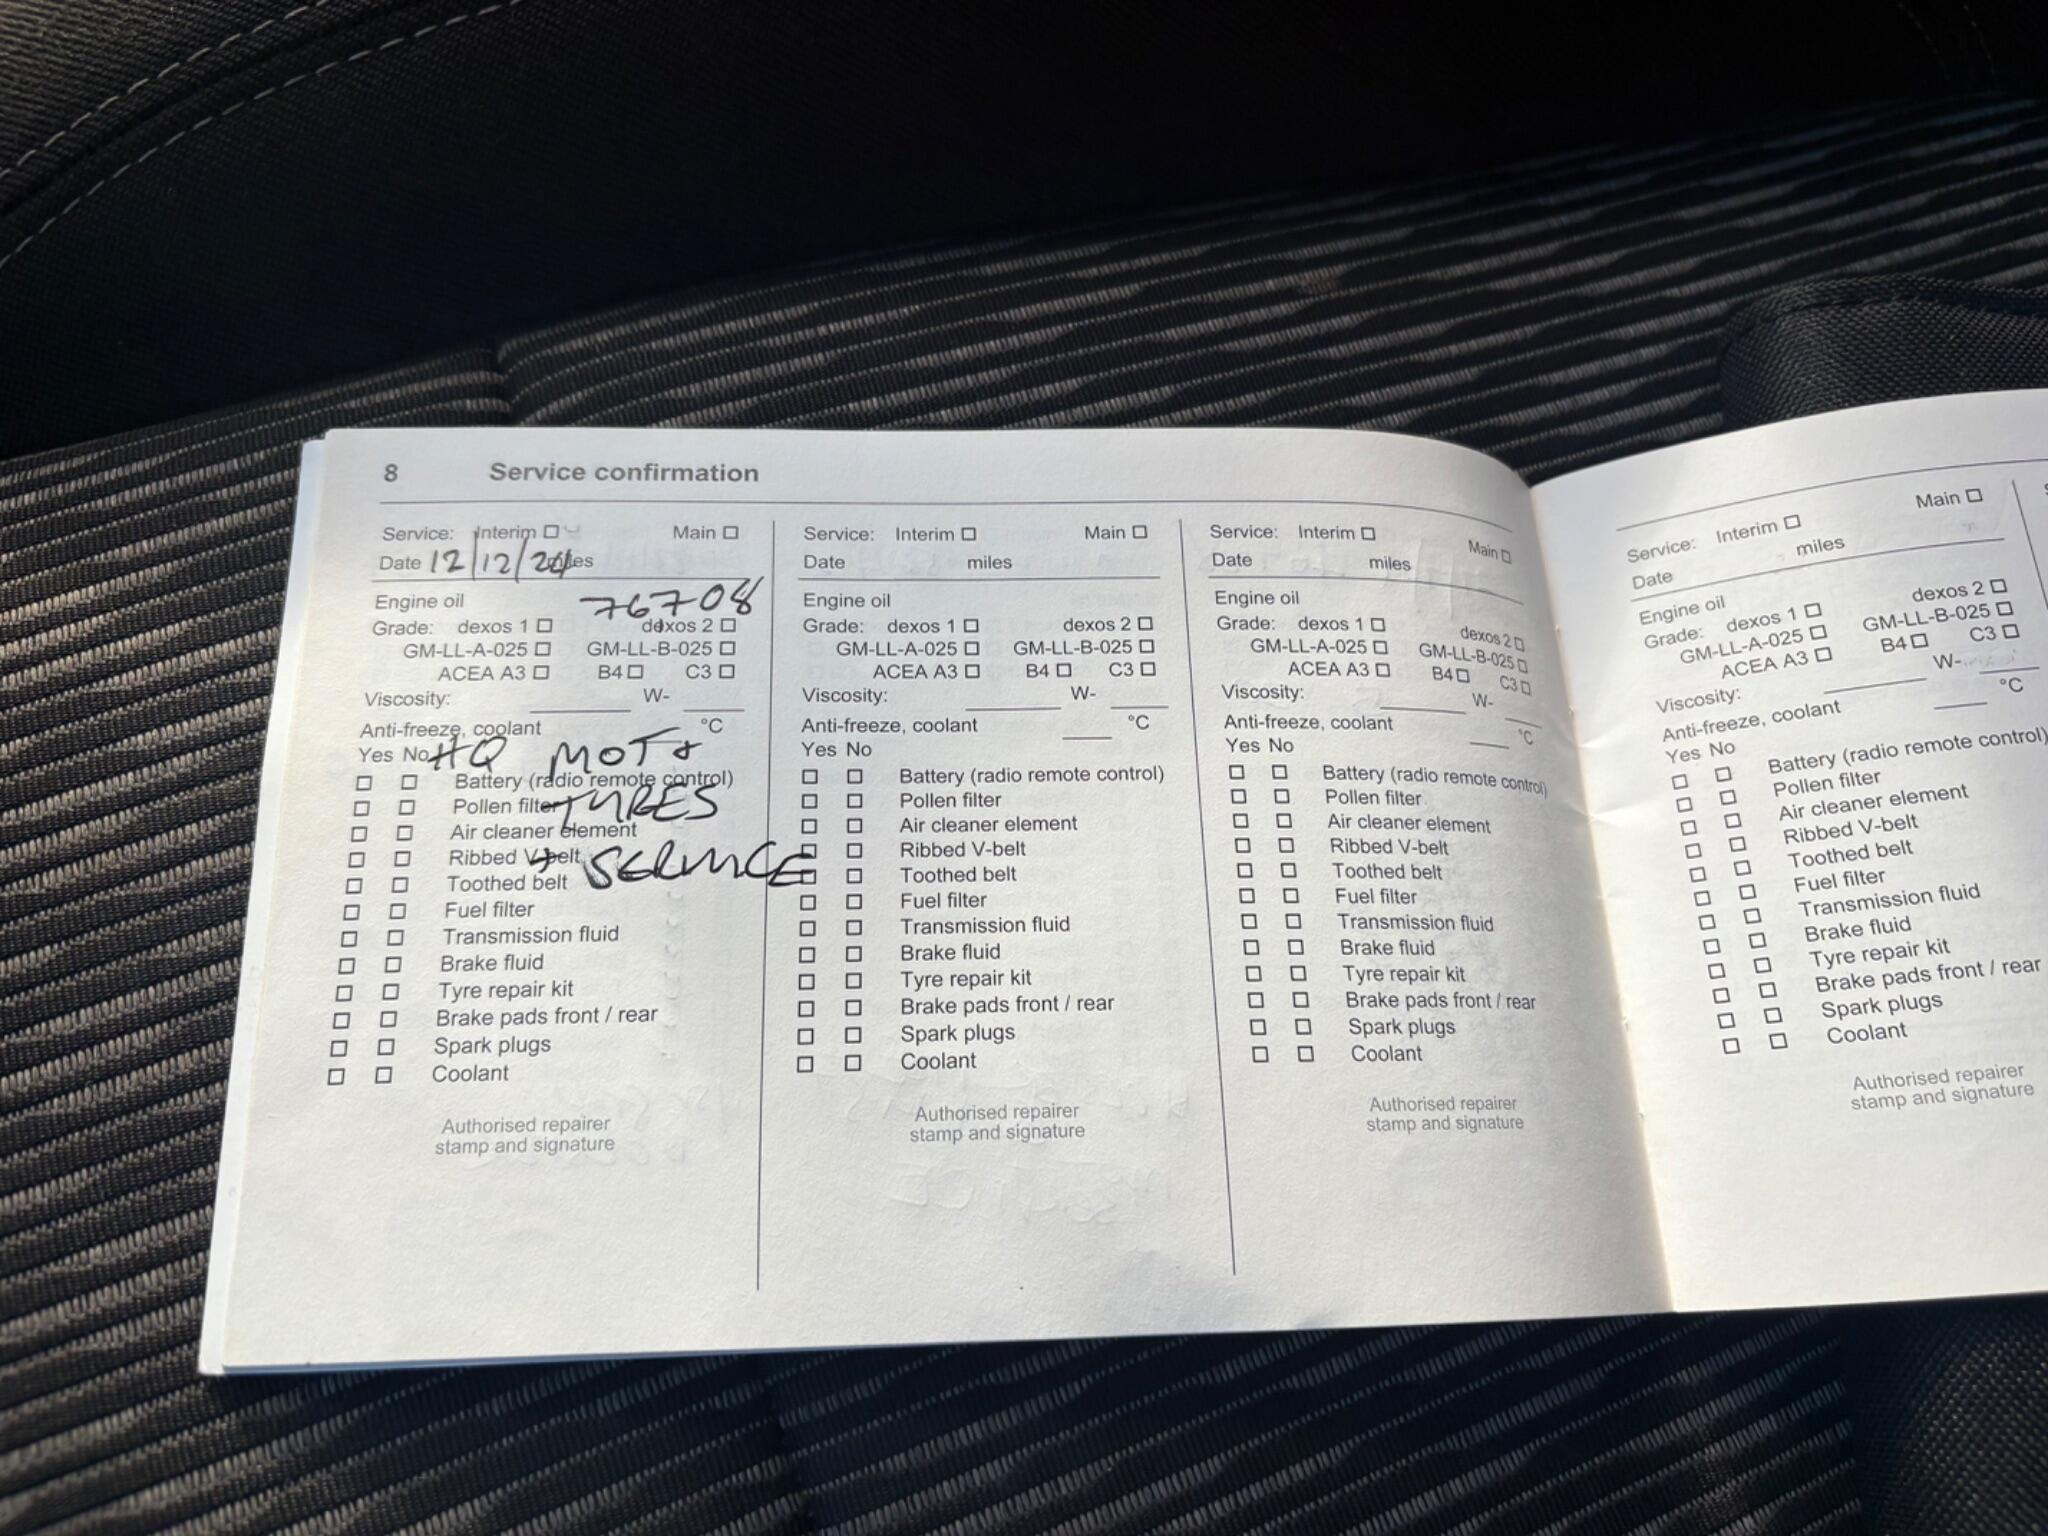 8 Service confirmation
Service: Interim Main
Date 12/12/24 miles
76708
Engine oil
Grade: dexos 1 dexos 2
GM-LL-A-025 GM-LL-B-025
ACEA A3 B4 C3
Viscosity: W-
Anti-freeze, coolant °C
Yes No
HQ MOT +
TYRES
+ SERVICE
Battery (radio remote control)
Pollen filter
Air cleaner element
Ribbed V-belt
Toothed belt
Fuel filter
Transmission fluid
Brake fluid
Tyre repair kit
Brake pads front / rear
Spark plugs
Coolant
Authorised repairer
stamp and signature
Service: Interim Main
Date miles
Engine oil
Grade: dexos 1 dexos 2
GM-LL-A-025 GM-LL-B-025
ACEA A3 B4 C3
Viscosity: W-
Anti-freeze, coolant °C
Yes No
Battery (radio remote control)
Pollen filter
Air cleaner element
Ribbed V-belt
Toothed belt
Fuel filter
Transmission fluid
Brake fluid
Tyre repair kit
Brake pads front / rear
Spark plugs
Coolant
Authorised repairer
stamp and signature
Service: Interim Main
Date miles
Engine oil
Grade: dexos 1 dexos 2
GM-LL-A-025 GM-LL-B-025
ACEA A3 B4 C3
Viscosity: W-
Anti-freeze, coolant °C
Yes No
Battery (radio remote control)
Pollen filter
Air cleaner element
Ribbed V-belt
Toothed belt
Fuel filter
Transmission fluid
Brake fluid
Tyre repair kit
Brake pads front / rear
Spark plugs
Coolant
Authorised repairer
stamp and signature
Service: Interim Main
Date miles
Engine oil
Grade: dexos 1 dexos 2
GM-LL-A-025 GM-LL-B-025
ACEA A3 B4 C3
Viscosity: W-
Anti-freeze, coolant °C
Yes No
Battery (radio remote control)
Pollen filter
Air cleaner element
Ribbed V-belt
Toothed belt
Fuel filter
Transmission fluid
Brake fluid
Tyre repair kit
Brake pads front / rear
Spark plugs
Coolant
Authorised repairer
stamp and signature